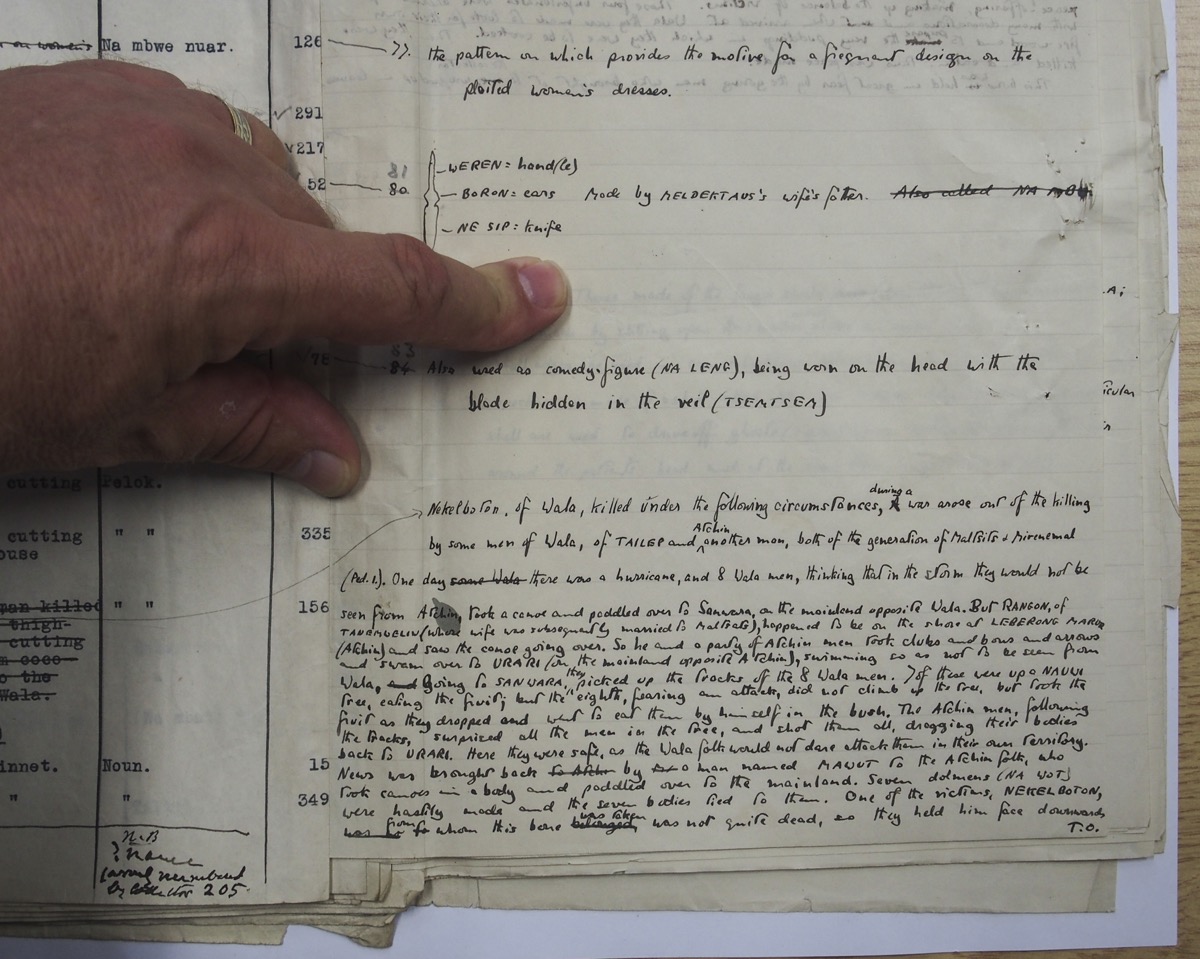 Na mbwe nuar.
126
77. the pattern on which provides the motive for a frequent design on the
plaited women's dresses.
291
217
52
81
80
WEREN = hand(le)
BORON = ears Made by MELDEKTAUS's wife's father. Also called NA
NE SIP = knife
83
84 Also used as comedy-figure (NA LENG), being worn on the head with the
blade hidden in the veil (TSEMTSEM)
cutting Pelok.
Nekelboton, of Wala, killed under the following circumstances, during a war arose out of the killing
cutting " " 335
by some men of Wala, of TAILEP and Atchin another man, both of the generation of Maltsits & Mirenemal
(Ped. 1.). One day some Wala there was a hurricane, and 8 Wala men, thinking that in the storm they would not be
man killed " " 156
seen from Atchin, took a canoe and paddled over to Sanwara, on the mainland opposite Wala. But RANGON, of
thigh-
(whose wife was subsequently married to), happened to be on the shore at LEBERONG
cutting
(Atchin) and saw the canoe going over. So he and a party of Atchin men took clubs and bows and arrows
and swam over to URARI (on the mainland opposite Atchin), swimming so as not to be seen from
to the
Wala. Wala, and Going to SANWARA, they picked up the tracks of the 8 Wala men. 7 of these were up a NAUWI
tree, eating the fruit; but the eighth, fearing an attack, did not climb up the tree, but took the
fruit as they dropped and went to eat them by himself in the bush. The Atchin men, following
the tracks, surprised all the men in the tree, and shot them all, dragging their bodies
back to URARI. Here they were safe, as the Wala folk would not dare attack them in their own territory.
innet. Noun. 15
News was brought back to Atchin by a man named MAWUT to the Atchin folk, who
took canoes in a body and paddled over to the mainland. Seven dolmens (NA WOT)
" " 349
were hastily made and the seven bodies tied to them. One of the victims, NEKELBOTON,
from whom this bone belonged was taken was not quite dead, so they held him face downwards
T.O.
N.B
by collector 205.